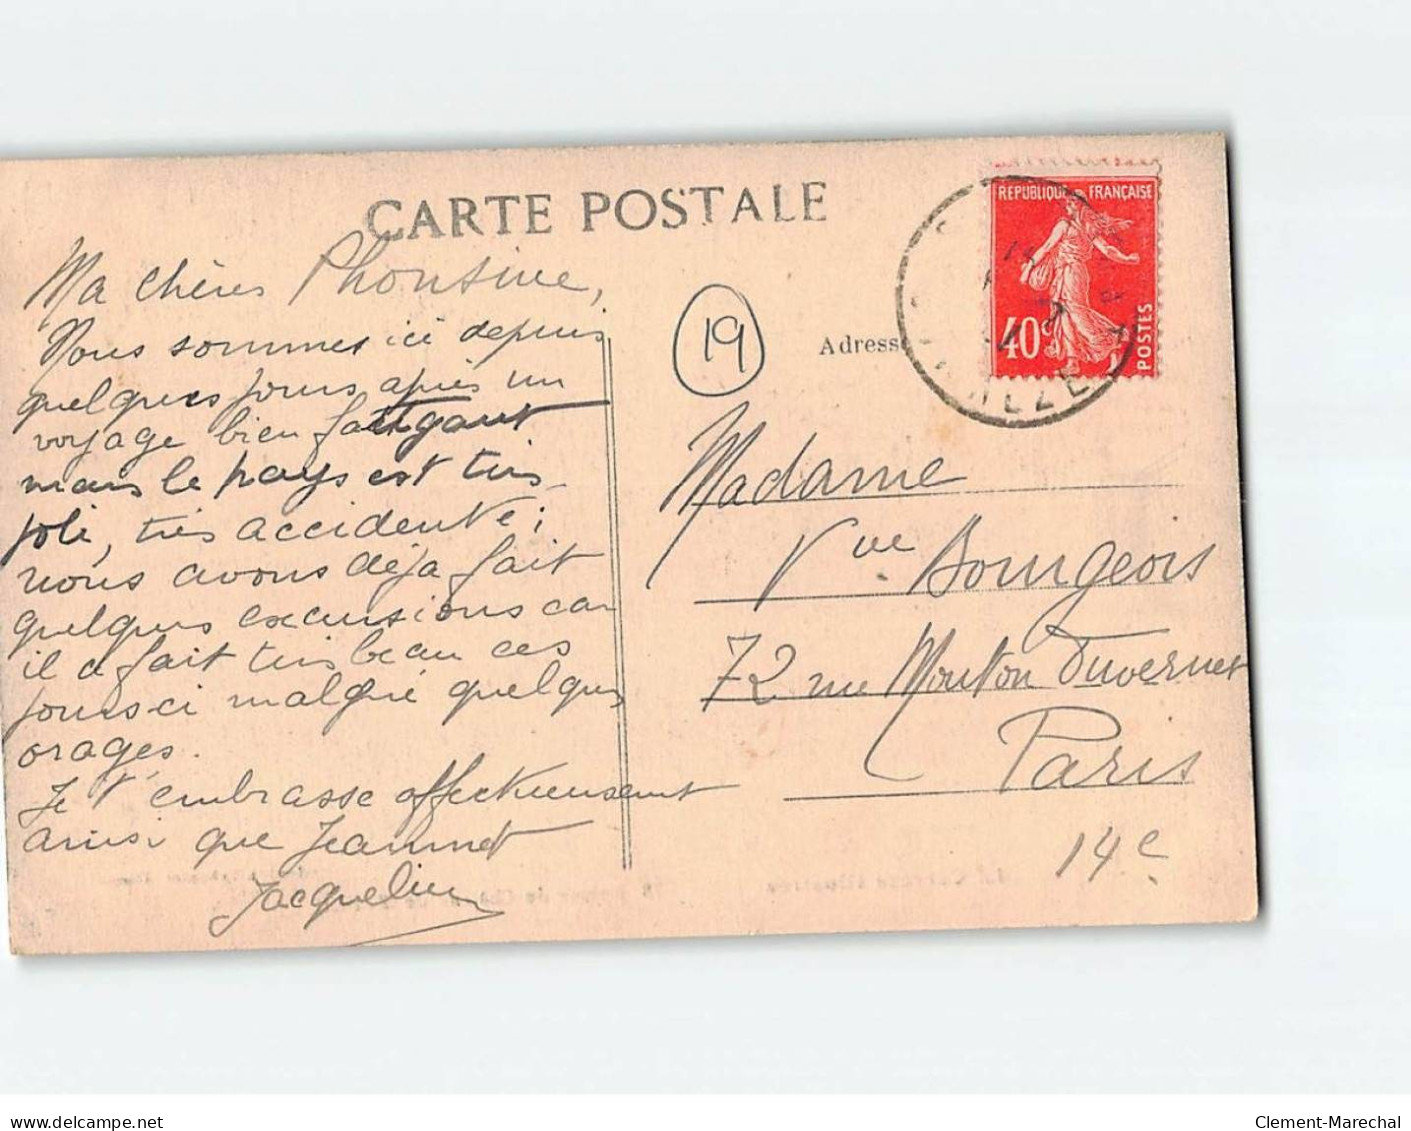 CARTE POSTALE
RÉPUBLIQUE FRANÇAISE
40c
POSTES
19
Adresse
Ma chères Phonsine,
Nous sommes ici depuis
quelques jours après un
voyage bien fatigant
mais le pays est très
joli, très accidenté ;
nous avons déja fait
quelques excursions car
il a fait très beau ces
jours-ci malgré quelques
orages.
Je t'embrasse affectueusement
ainsi que Jeannet
Jacqueline
Madame
Vve Bourgeois
72 rue Mouton Duvernet
Paris
14e
Clement-Marechal
delcampe.net